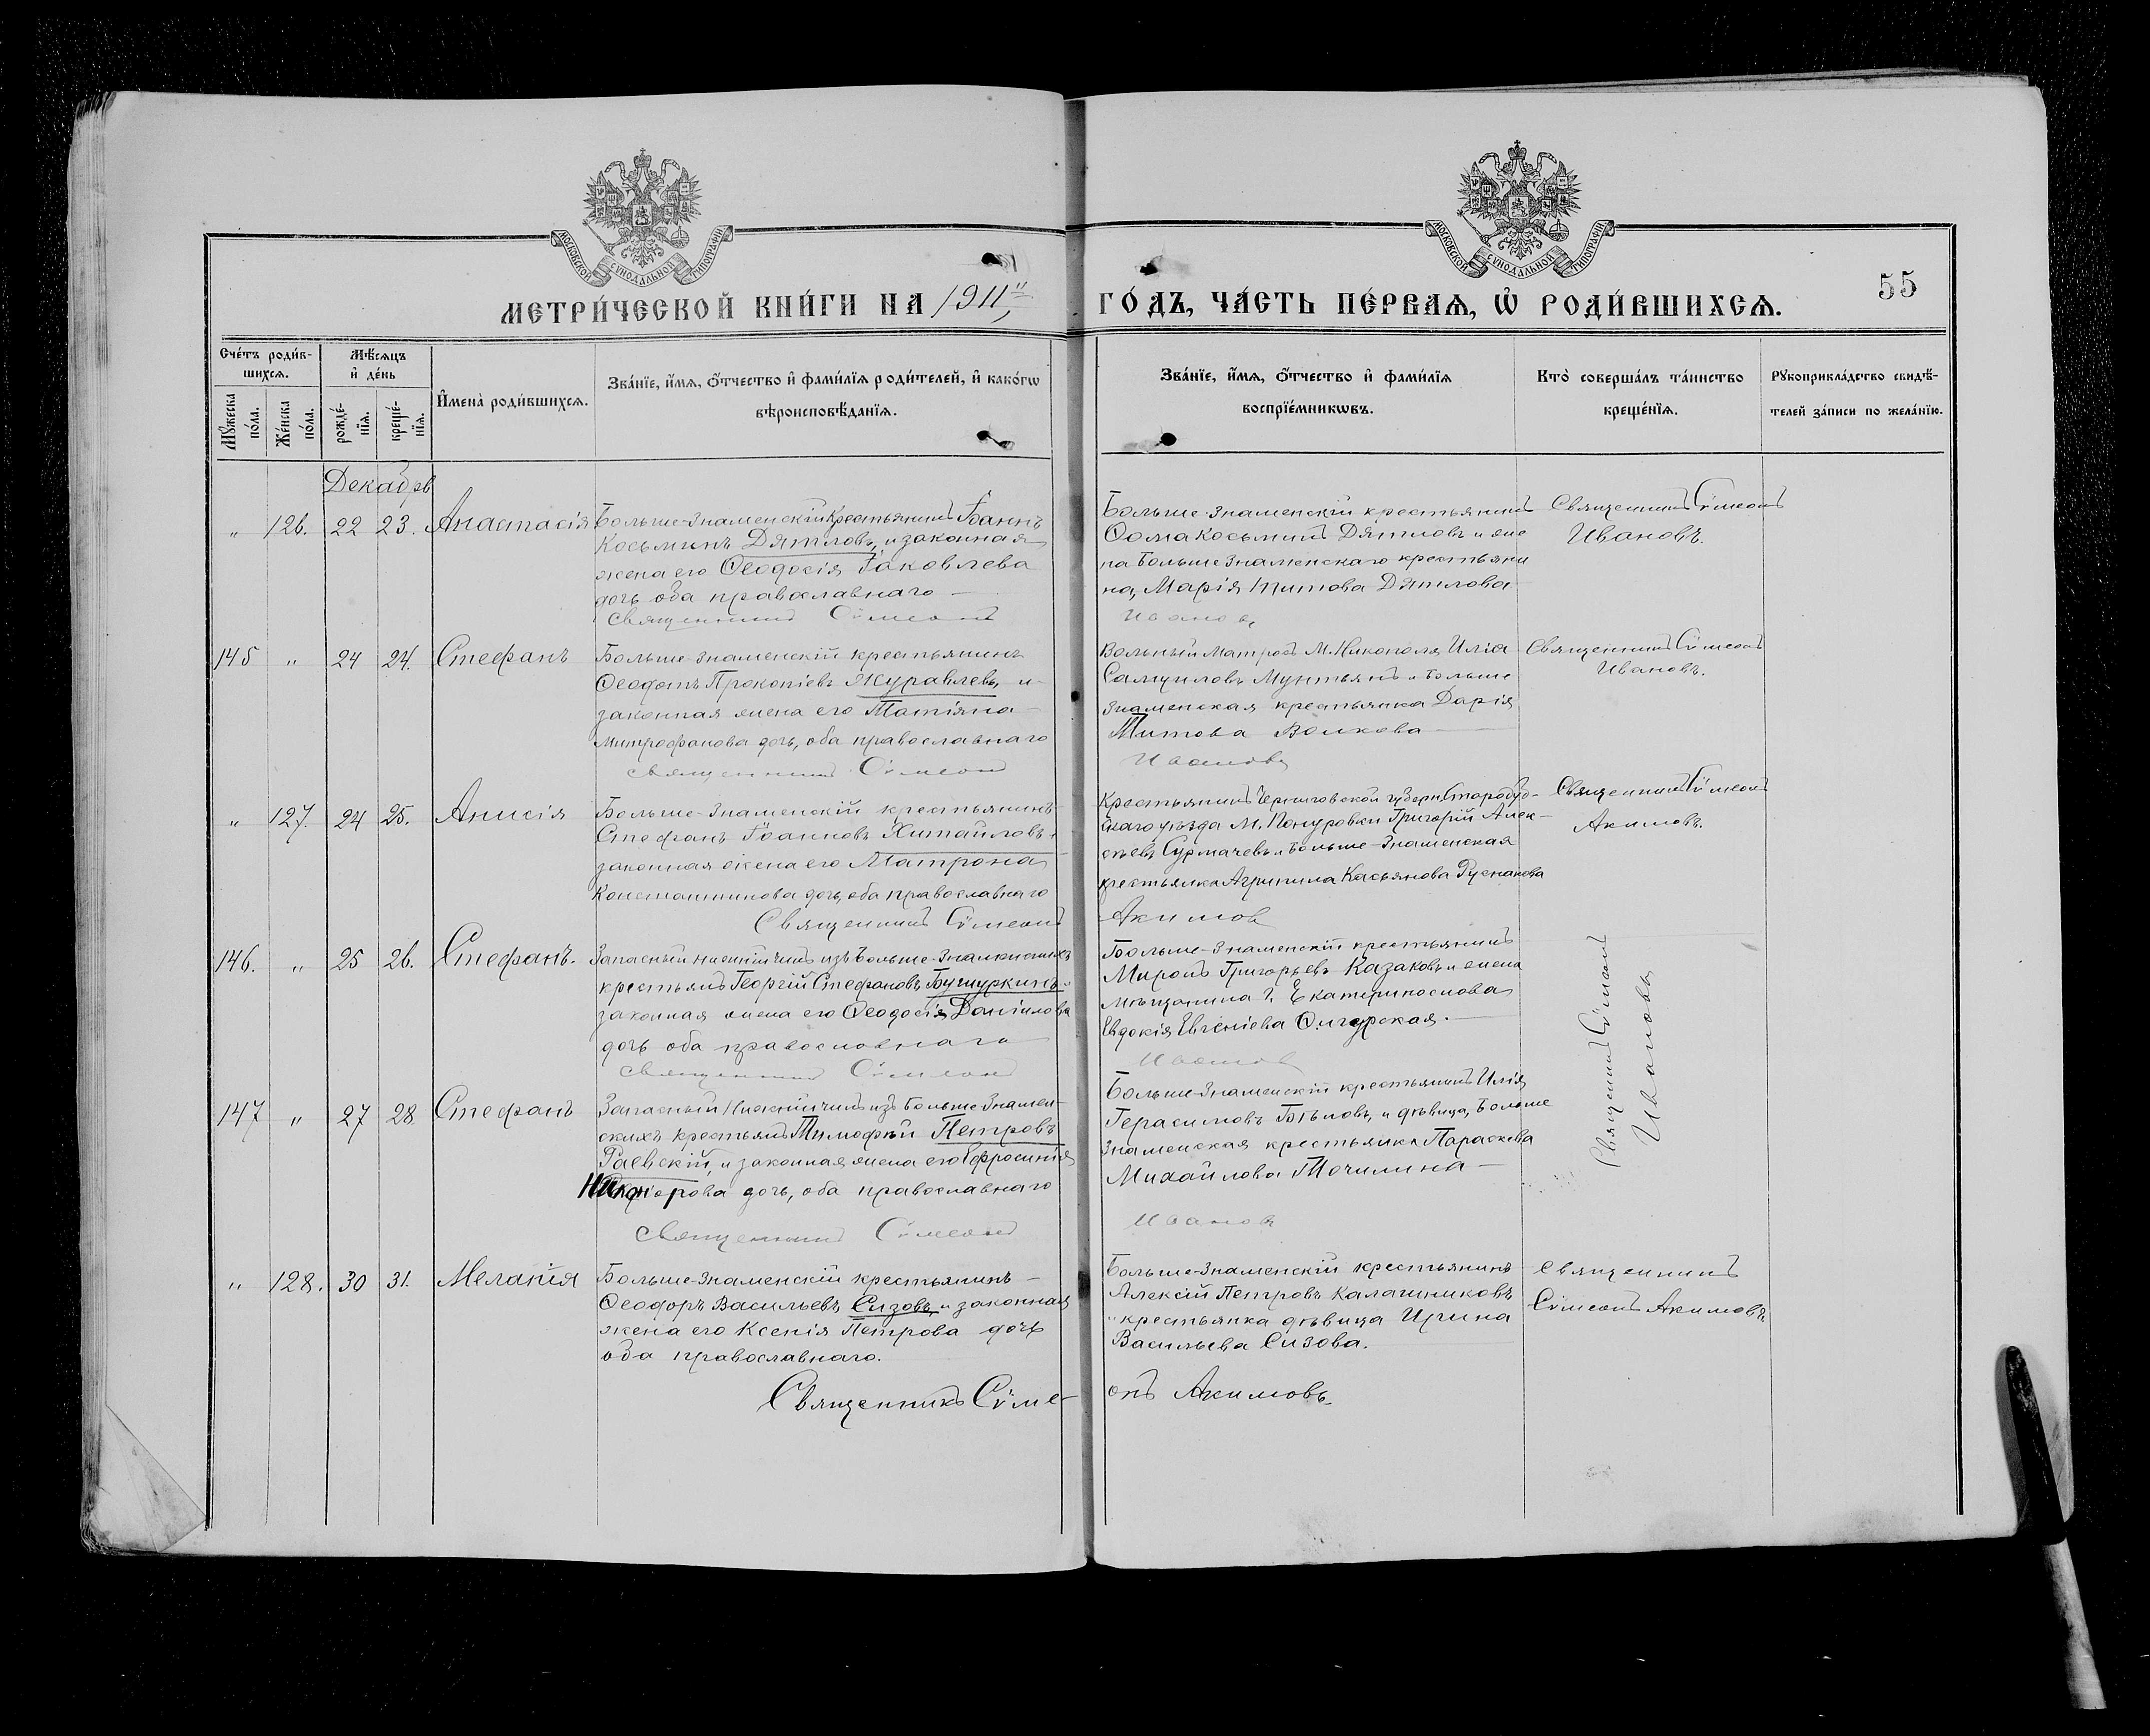 МОСКОВСКОЙ СѴНОДАЛЬНОЙ ТИПОГРАФІИ
МОСКОВСКОЙ СѴНОДАЛЬНОЙ ТИПОГРАФІИ
55
МЕТРИ́ЧЕСКОЙ КНИ́ГИ НА 1911 ГО́ДЪ, ЧА́СТЬ ПЕ́РВАѦ, Ѡ҆ РОДИ́ВШИХСѦ.
Сче́тъ роди́в-
шихсѧ.
Мѣ́сѧцъ
и҆ де́нь
Мꙋ́жеска
по́ла.
Же́нска
по́ла.
рожде́-
нїѧ.
креще́-
нїѧ.
И҆мена̀ роди́вшихсѧ.
Зва́нїе, и҆́мѧ, ѻ҆́тчество и҆ фами́лїѧ роди́телей, и҆ како́гѡ
вѣроисповѣ́данїѧ.
Зва́нїе, и҆́мѧ, ѻ҆́тчество и҆ фами́лїѧ
воспрїе́мникѡвъ.
Кто̀ соверша́лъ та́инство
креще́нїѧ.
Рꙋкоприкла́дство свидѣ́-
телей за́писи по жела́нїю.
Декабрь
" 126. 22 23. Анастасія
Больше-Знаменскій крестьянинъ Іоаннъ
Косьминъ Дятловъ, и законная
жена его Ѳеодосія Іаковлева
дочь оба православнаго
Священникъ Сѵмеонъ
Больше-Знаменскій крестьянинъ
Ѳома Косьминъ Дятловъ и же
на Больше Знаменскаго крестьяни
на, Марія Титова Дятлова
Ивановъ
Священникъ Сѵмеонъ
Ивановъ.
145 " 24 24. Стефанъ
Больше-Знаменскій крестьянинъ
Ѳеодотъ Прокопіевъ Журавлевъ и
законная жена его Татіяна
Митрофанова дочь, оба православнаго
Священникъ Сѵмеонъ
Вольный матросъ М. Никополя Илія
Самуиловъ Мунтьянъ и Больше
Знаменская крестьянка Дарія
Титова Волкова
Ивановъ
Священникъ Сѵмеонъ
Ивановъ.
" 127. 24 25. Анисія
Больше-Знаменскій крестьянинъ
Стефанъ Іоанновъ Хитайловъ и
законная жена его Матрона
Константинова дочь, оба православнаго
Священникъ Сѵмеонъ
Крестьянинъ Черниговской губерн. Стародуб-
скаго уѣзда М. Понуровки Григорій Алек-
сѣевъ Сурмачевъ и Больше-Знаменская
крестьянка Агрипина Касьянова Русанова
Акимовъ
Священникъ Сѵмеонъ
Акимовъ.
146. " 25 26. Стефанъ.
Запасный нижній чинъ изъ Больше-Знаменскихъ
крестьянъ Георгій Стефановъ Бушуркинъ и
законная жена его Ѳеодосія Даніилова
дочь оба православнаго
Священникъ Сѵмеонъ
Больше-Знаменскій крестьянинъ
Миронъ Григорьевъ Казаковъ и жена
мѣщанина г. Екатеринослава
Евдокія Евгеніева
Ивановъ
Священникъ Сѵмеонъ
Ивановъ
147 " 27 28 Стефанъ
Запасный нижній чинъ изъ Больше Знамен-
скихъ крестьянъ Тимофей Петровъ
Раевскій, и законная жена его Ефросинія
Никифорова дочь, оба православнаго
Священникъ Сѵмеонъ
Больше-Знаменскій крестьянинъ Илія
Герасимовъ Бѣловъ, и дѣвица, Больше
Знаменская крестьянка Параскева
Михайлова Точилина
Ивановъ
" 128. 30 31. Меланія
Больше-Знаменскій крестьянинъ
Ѳеодоръ Васильевъ Сизовъ, и законная
жена его Ксенія Петрова дочь
оба православнаго.
Священникъ Сѵме-
Больше-Знаменскій крестьянинъ
Алексій Петровъ Калашниковъ
и крестьянка дѣвица Ирина
Васильева Сизова.
онъ Акимовъ.
Священникъ
Сѵмеонъ Акимовъ